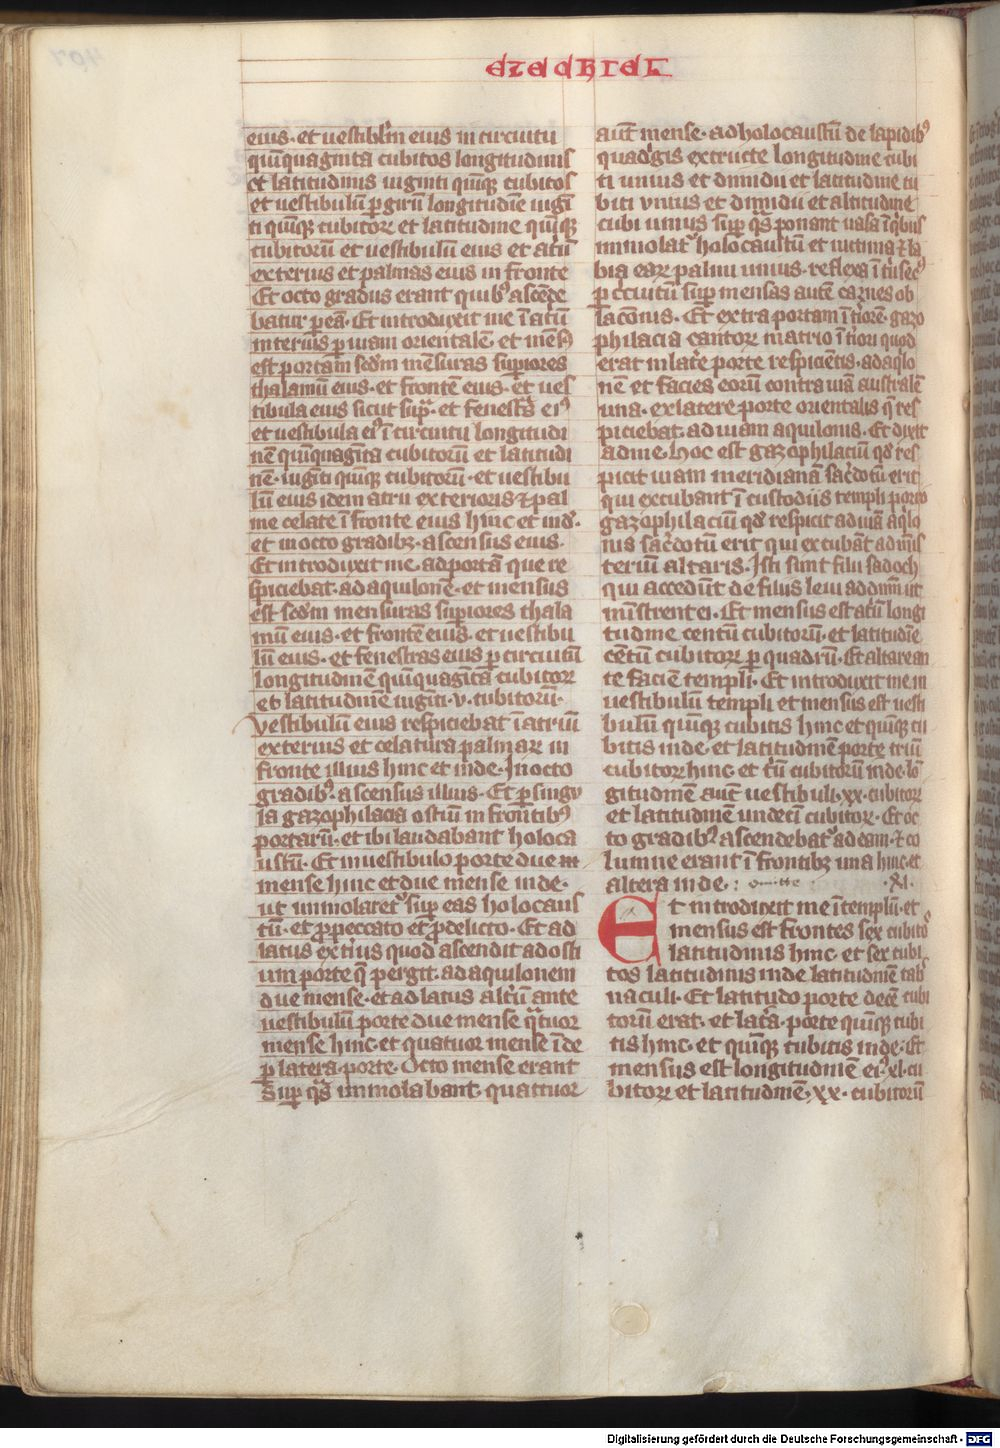 ezechiel
eius · et uestibl'm eius in circuitu
qui̅quaginta cubitos longitudinis
et latitudinis uiginti qui̅q; cubitos
et uestibulu̅ p giru̅ longitudi̅e uigi̅
ti qui̅q; cubitoꝝ et latitudine qui̅q;
cubitoru̅ et uestibulu̅ eius et atu̅
exterius et palmas eius in fronte
Et octo gradus erant quib9 asce̅de
batur p ea̅ · Et introduxit me i̅ atu̅
interius p uiam orientale̅ · et me̅s9
est portam sed'm me̅suras sup̅iores
thalamu̅ eius · et fronte̅ eius · et ues
tibula eius sicut sup̅a · et fenest̅a ei9
et uestibula ei9 i̅ circuitu longitudi
ne̅ qui̅quagi̅ta cubitoru̅ et latitudi
ne̅ · uigi̅ti qui̅q; cubitoru̅ · et uestibu
lu̅ eius idem atrii exterioris ⁊ pal
me celate i̅ fronte eius hinc et ind'e ·
et in octo gradib; · ascensus eius ·
Et introduxit me · ad porta̅ que re
spiciebat · ad aquilone̅ · et mensus
est sed'm mensuras sup̅iores thala
mu̅ eius · et fronte̅ eius · et uestibu
lu̅ eius · et fenestras eius p circuitu̅
longitudinem qui̅quagi̅ta cubitoꝝ
et latitudine̅ uigi̅ti · v · cubitoru̅ ·
Vestibulum eius respiciebat i̅ atriu̅
exterius et celatura palmaꝝ in
fronte illius hinc et inde · In octo
gradib9 · ascensus illius · Et p singu
la gazophilacia ostiu̅ in fro̅tib9
portaru̅ · et ibi laudabant holoca
ustu̅ · Et in uestibulo porte due in
mense hinc et due mense inde ·
ut immolaret' sup̅ eas holocaus
tu̅ · et p̅ peccato et p̅ delicto · Et ad
latus ext'ius quod ascendit ad osti
um porte q̅ pergit · ad aquilonem
due mense · et ad latus alt'u̅ ante
uestibulu̅ porte due mense q̅tuor
mense hinc · et quatuor mense i̅de
p latera · porte · Octo mense erant
sup̅ q̅s immolabant · quattuor
aute̅ mense · ad holocaustu̅ de lapidib9
quad'gis extructe longitudine cubi
ti unius et dimidii et latitudine cu
biti vnius et dimidii et altitudine
cubi unius sup̅ q̅s ponant uasa i̅ q'bus
immolat' holocaustu̅ et uictima ⁊ la
bia eaꝝ palmi unius · reflexa i̅t'i̅sec9
p c'cuitu̅ sup̅ mensas aute̅ carnes ob
lac̅onis · Et extra portam i̅t'iore̅ · gazo
philacia cantoꝝ i̅ atrio i̅t'iori quod
erat in lat'e porte respicie̅tis · ad aq'lo
ne̅ et facies eoru̅ contra uia̅ australe̅
una · ex latere porte orientalis q̅ res
piciebat · ad uiam aquilonis · Et dixit
ad me · Hoc est gazophilaciu̅ q'd res
picit uiam meridiana̅ sac'dotu̅ erit
qui excubant i̅ custodiis templi porro
gazophilaciu̅ q'd respicit ad uia̅ aq'lo
nis sac'dotu̅ erit qui excuba̅t ad mi̅is
terium altaris · Isti sunt filii sadoch
qui accedu̅t de filiis leui ad dn̅m ut
mi̅strent ei · Et mensus est atu̅ longi
tudine centu̅ cubitoru̅ · et latitudi̅e
ce̅tu̅ cubitoꝝ p quadru̅ · Et altare an
te facie̅ templi · Et introduxit me in
uestibulu̅ templi et mensus est uesti
bulu̅ qui̅q; cubitis hinc et qui̅q; cu
bitis inde · et latitudine̅ porte triu̅
cubitoꝝ hinc · et t'u̅ cubitoru̅ inde · lo̅
gitudine̅ aute̅ uestibuli · xx · cubitoꝝ
et latitudine̅ undeci̅ cubitoꝝ · Et oc
to gradib9 ascendebat' ad eam · ⁊ co
lumne erant i̅ frontib; una hinc · et
altera inde · : omitte · XI ·
Et introduxit me i̅ templu̅ · et
mensus est frontes sex cubito̅
latitudinis hinc · et sex cubi
tos latitudinis inde latitudine̅ tab'
naculi · Et latitudo porte dece̅ cubi
toru̅ erat · et lat'a · porte qui̅q; cubi
tis hinc · et qui̅q; cubitis inde · Et
mensus est longitudine̅ ei9 xl · cu
bitoꝝ et latitudine̅ · xx · cubitoru̅
Digitalisierung gefördert durch die Deutsche Forschungsgemeinschaft - DFG